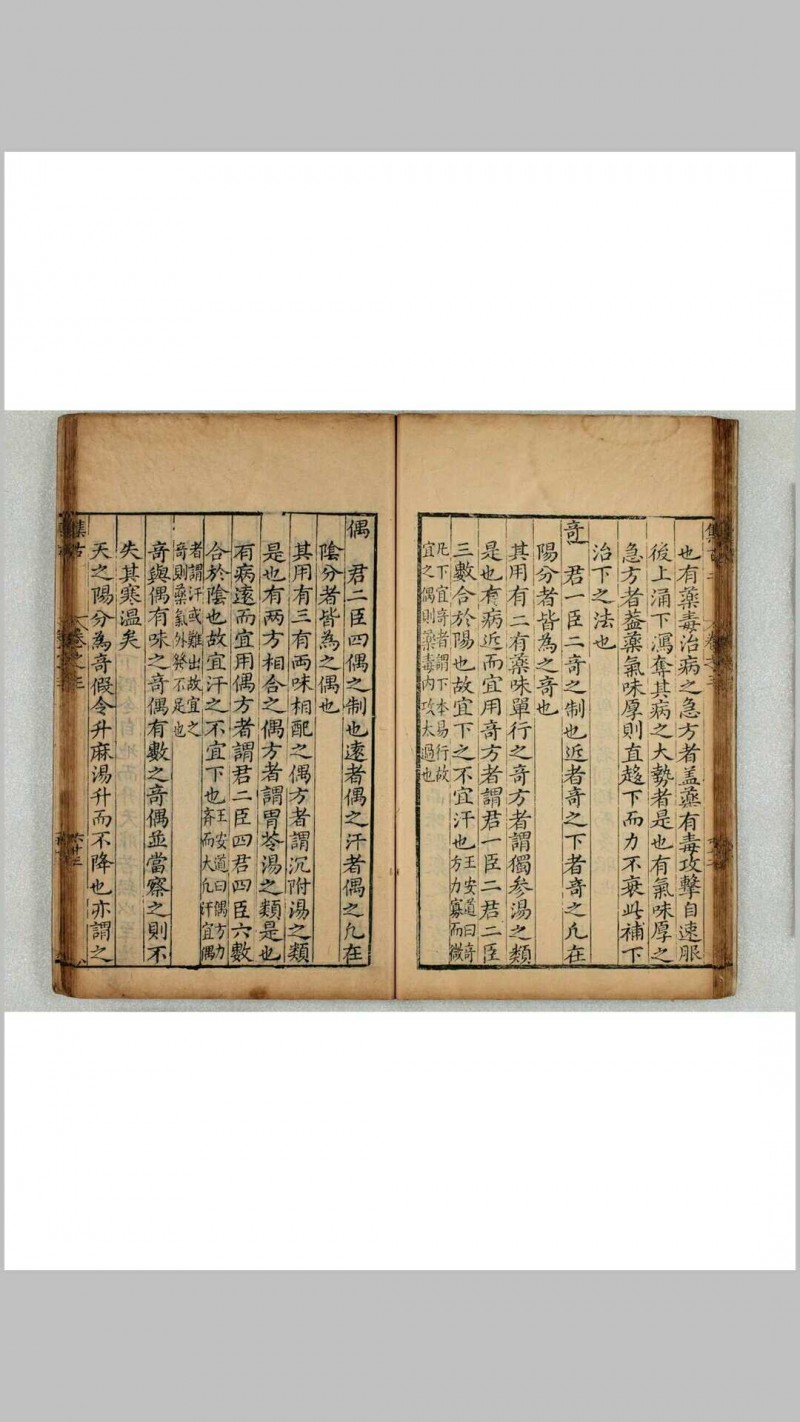 也有藥毒治病之急方者盖藥有毒攻擊自速服
後上涌下瀉奪其病之大勢者是也有氣味厚之
急方者葢藥氣味厚則直趍下而力不衰此補下
治下之法也
奇 君一臣二奇之制也近者奇之下者奇之凢在
陽分者皆為之奇也
其用有二有藥味單行之奇方者謂獨參湯之類
是也有病近而宜用奇方者謂君一臣二君二臣
三數合於陽也故宜下之不宜汗也王安道曰奇
方力寡而微
凢下宜奇者謂下本易行故
宜之偶則藥毒內攻太過也
偶 君二臣四偶之制也遠者偶之汗者偶之凢在
陰分者皆為之偶也
其用有三有兩味相配之偶方者謂沉附湯之類
是也有两方相合之偶方者謂胃苓湯之類是也
有病遠而宜用偶方者謂君二臣四君四臣六數
合於陰也故宜汗之不宜下也王安道曰偶方力
齊而大凢汗宜偶
者謂汗或難出故宜之
奇則藥氣外發不足也
奇與偶有味之奇偶有數之奇偶並當察之則不
失其寒溫矣
天之陽分為奇假令升麻湯升而不降也亦謂之